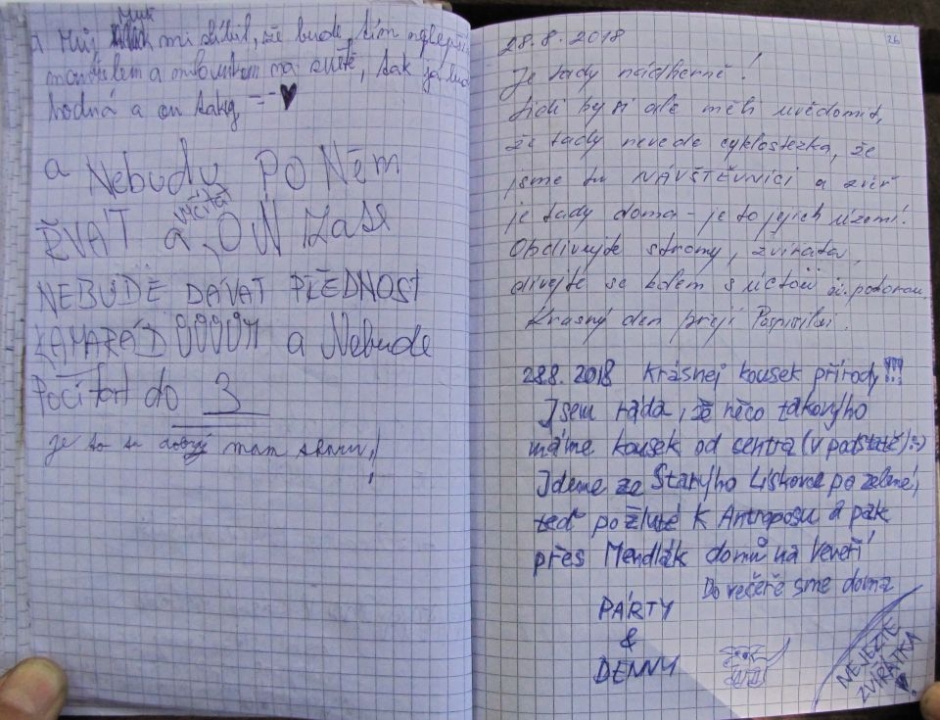 a Můj Muž mi slíbil, že bude tím nejlepším
manželem a milovníkem na světě, tak já budu
hodná a on taky = ♥
a Nebudu PO Něm
ŘVAT a ON ZASE
vyčítat
NEBUDE DÁVAT PŘEDNOST
KAMARÁDŮŮŮŮM a Nebude
Počítat do 3
je to tu dobrý mam srandu!
26
28.8.2018
Je tady nádherně!
Lidi by si ale měli uvědomit,
že tady nevede cyklostezka, že
jsme tu NÁVŠTĚVNÍCI a zvěř
je tady doma - je to jejich území.
Obdivujte stromy, zvířata,
dívejte se kolem s úctou a pokorou.
Krásný den přejí Pospíšilovi.
28.8.2018 Krásnej kousek přírody!!!
Jsem ráda, že něco takovýho
máme kousek od centra (v podstatě) :-)
Jdeme ze Starýho Lískovce po zelené,
teď po žluté k Antroposu a pak
přes Mendlák domů na Veveří
Do večeře sme doma
PÁRTY
&
DENNY
NEJEZTE
ZVÍŘÁTKA
♥